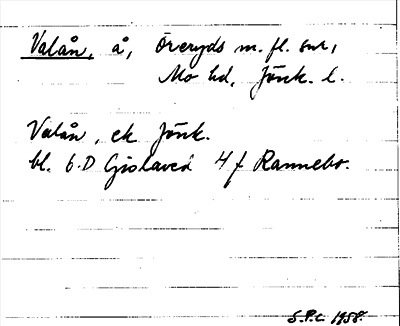 Valån, å, Öreryds m. fl. snr,
Mo hd, Jönk. l.
Valån, ek Jönk.
bl. 6 D Gislaved 4 f Rannebo.
S.P.L. 1958.